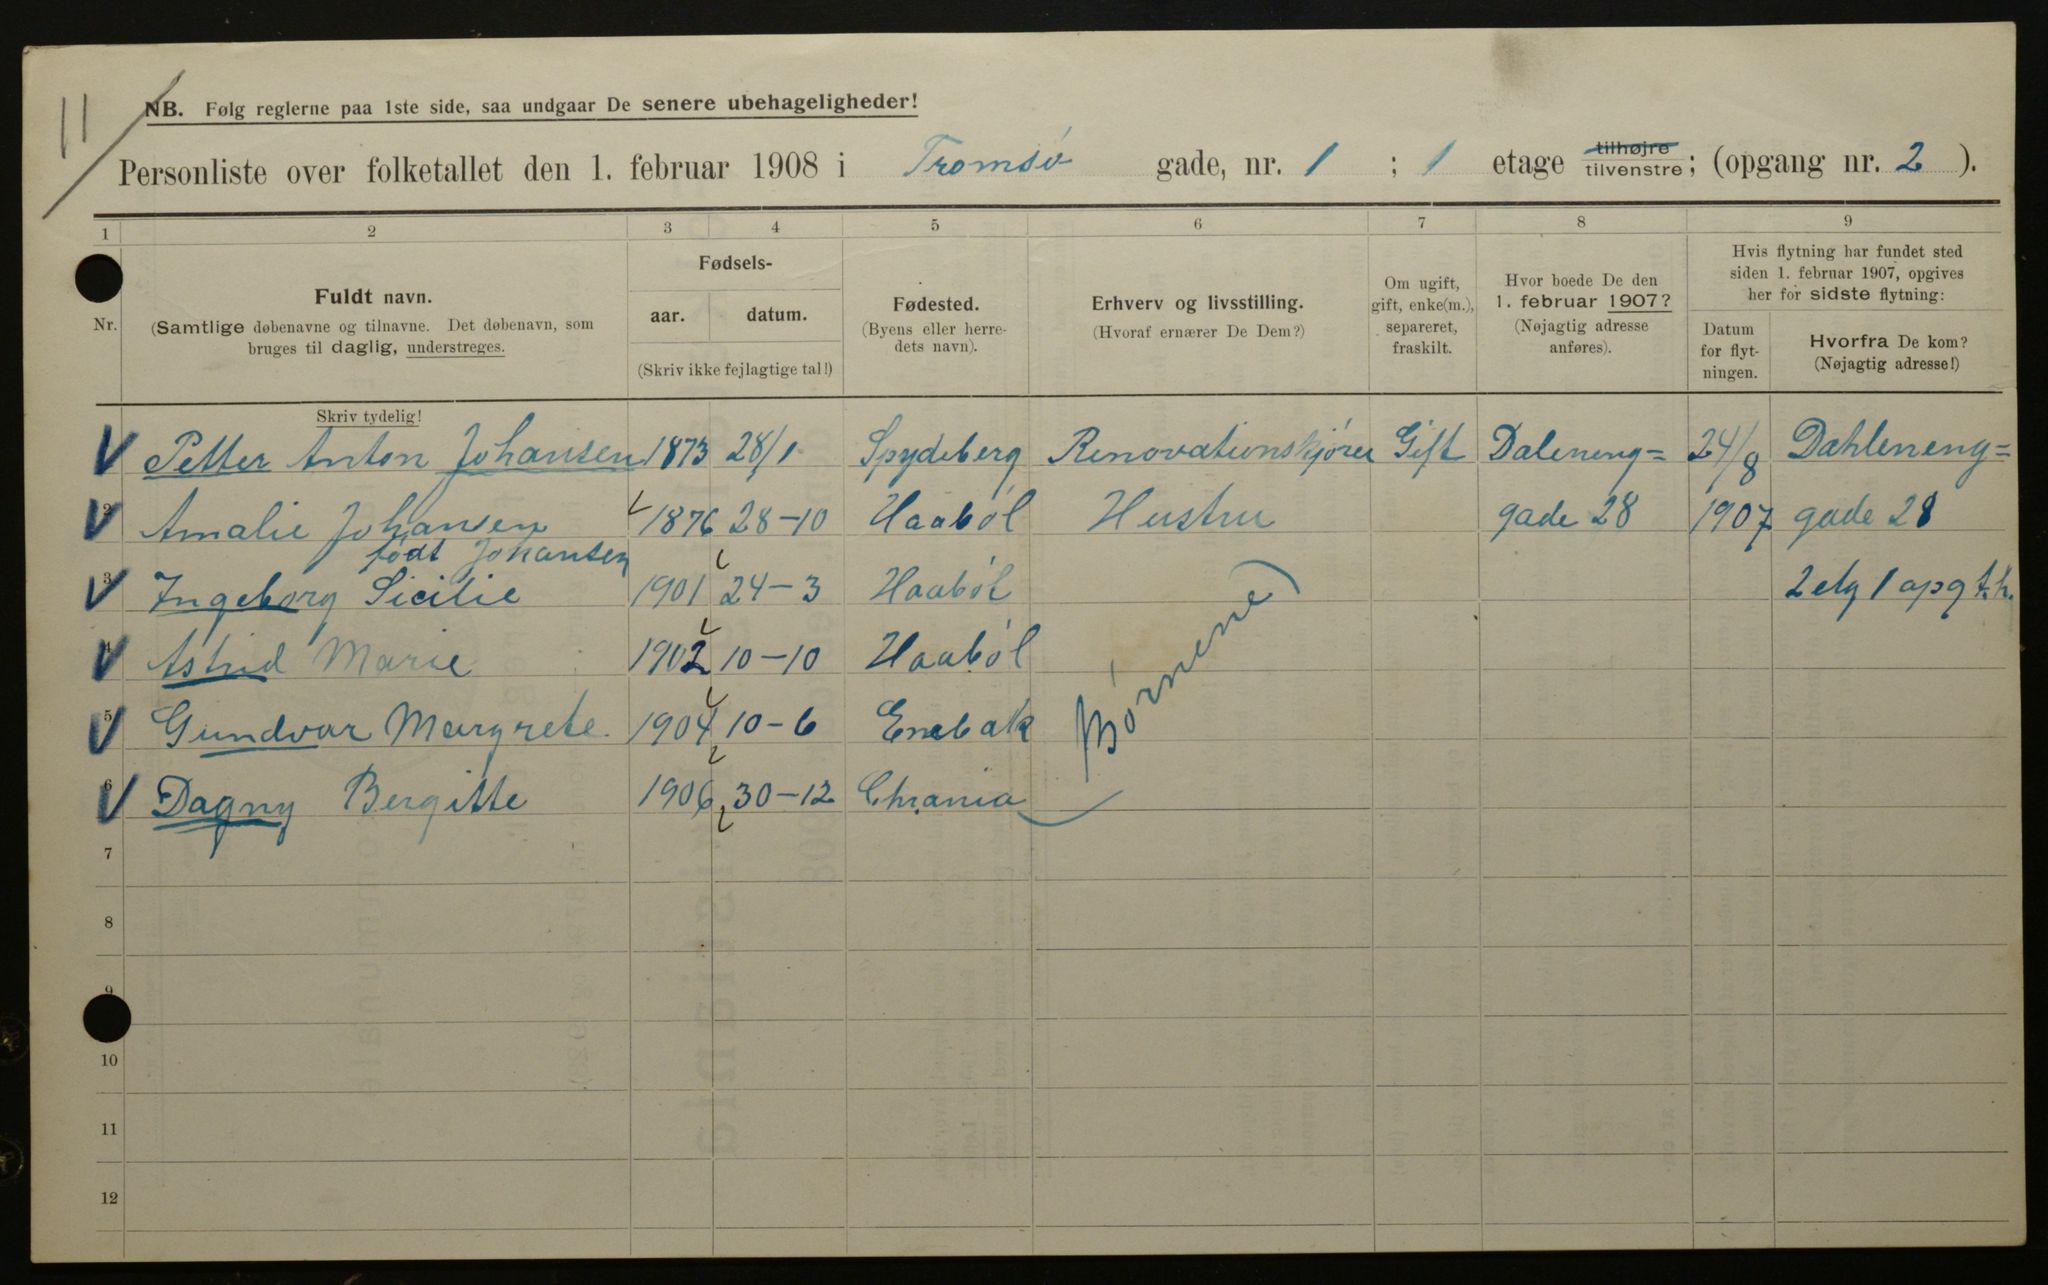 11
NB. Følg reglerne paa 1ste side, saa undgaar De senere ubehageligheder!
Personliste over folketallet den 1. februar 1908 i Tromsö gade, nr. 1 ; 1 etage tilhøjre tilvenstre; (opgang nr. 2 ).
1 2 3 4 5 6 7 8 9
Nr.
Fuldt navn.
(Samtlige døbenavne og tilnavne. Det døbenavn, som
bruges til daglig, understreges.
Skriv tydelig!
Fødsels-
aar. datum.
(Skriv ikke fejlagtige tal!)
Fødested.
(Byens eller herre-
dets navn).
Erhverv og livsstilling.
(Hvoraf ernærer De Dem?)
Om ugift,
gift, enke(m.),
separeret,
fraskilt.
Hvor boede De den
1. februar 1907?
(Nøjagtig adresse
anføres).
Hvis flytning har fundet sted
siden 1. februar 1907, opgives
her for sidste flytning:
Datum
for flyt-
ningen.
Hvorfra De kom?
(Nøjagtig adresse!)
Petter Anton Johansen 1873 28/1 Spydeberg Renovationskjører Gift Daleneng= 24/8 Dahleneng=
2 Amalie Johansen 1876 28-10 Haaböl Hustru gade 28 1907 gade 28
födt Johansen
3 Ingeborg Sicilie 1901 24-3 Haaböl 2 etg 1 opg t.h.
4 Astrid Marie 1902 10-10 Haaböl
Börnene
5 Gundvor Margrete. 1904 10-6 Enebak
6 Dagny Bergitte 1906 30-12 Chrania
7
8
9
10
11
12